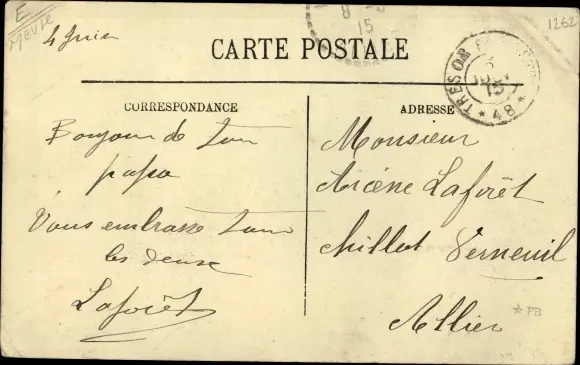 E
Meuse
4 Juin
8
15
1262
CARTE POSTALE
TRESOR
15
* 48 *
CORRESPONDANCE
ADRESSE
Bonjour de ton
papa
Vous embrasse tous
les deux
Laforêt
Monsieur
Arcène Laforêt
Chillot Verneuil
Allier
* PB